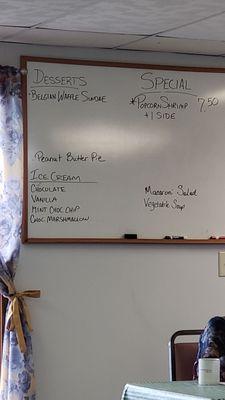 DESSERTS
·BELGIAN WAFFLE SUNDAE
Peanut Butter Pie
ICE CREAM
CHOCOLATE
VANILLA
MINT CHOC CHIP
CHOC MARSHMALLOW
SPECIAL
*POPCORN SHRIMP 7.50
+1 SIDE
Macaroni Salad
Vegetable Soup